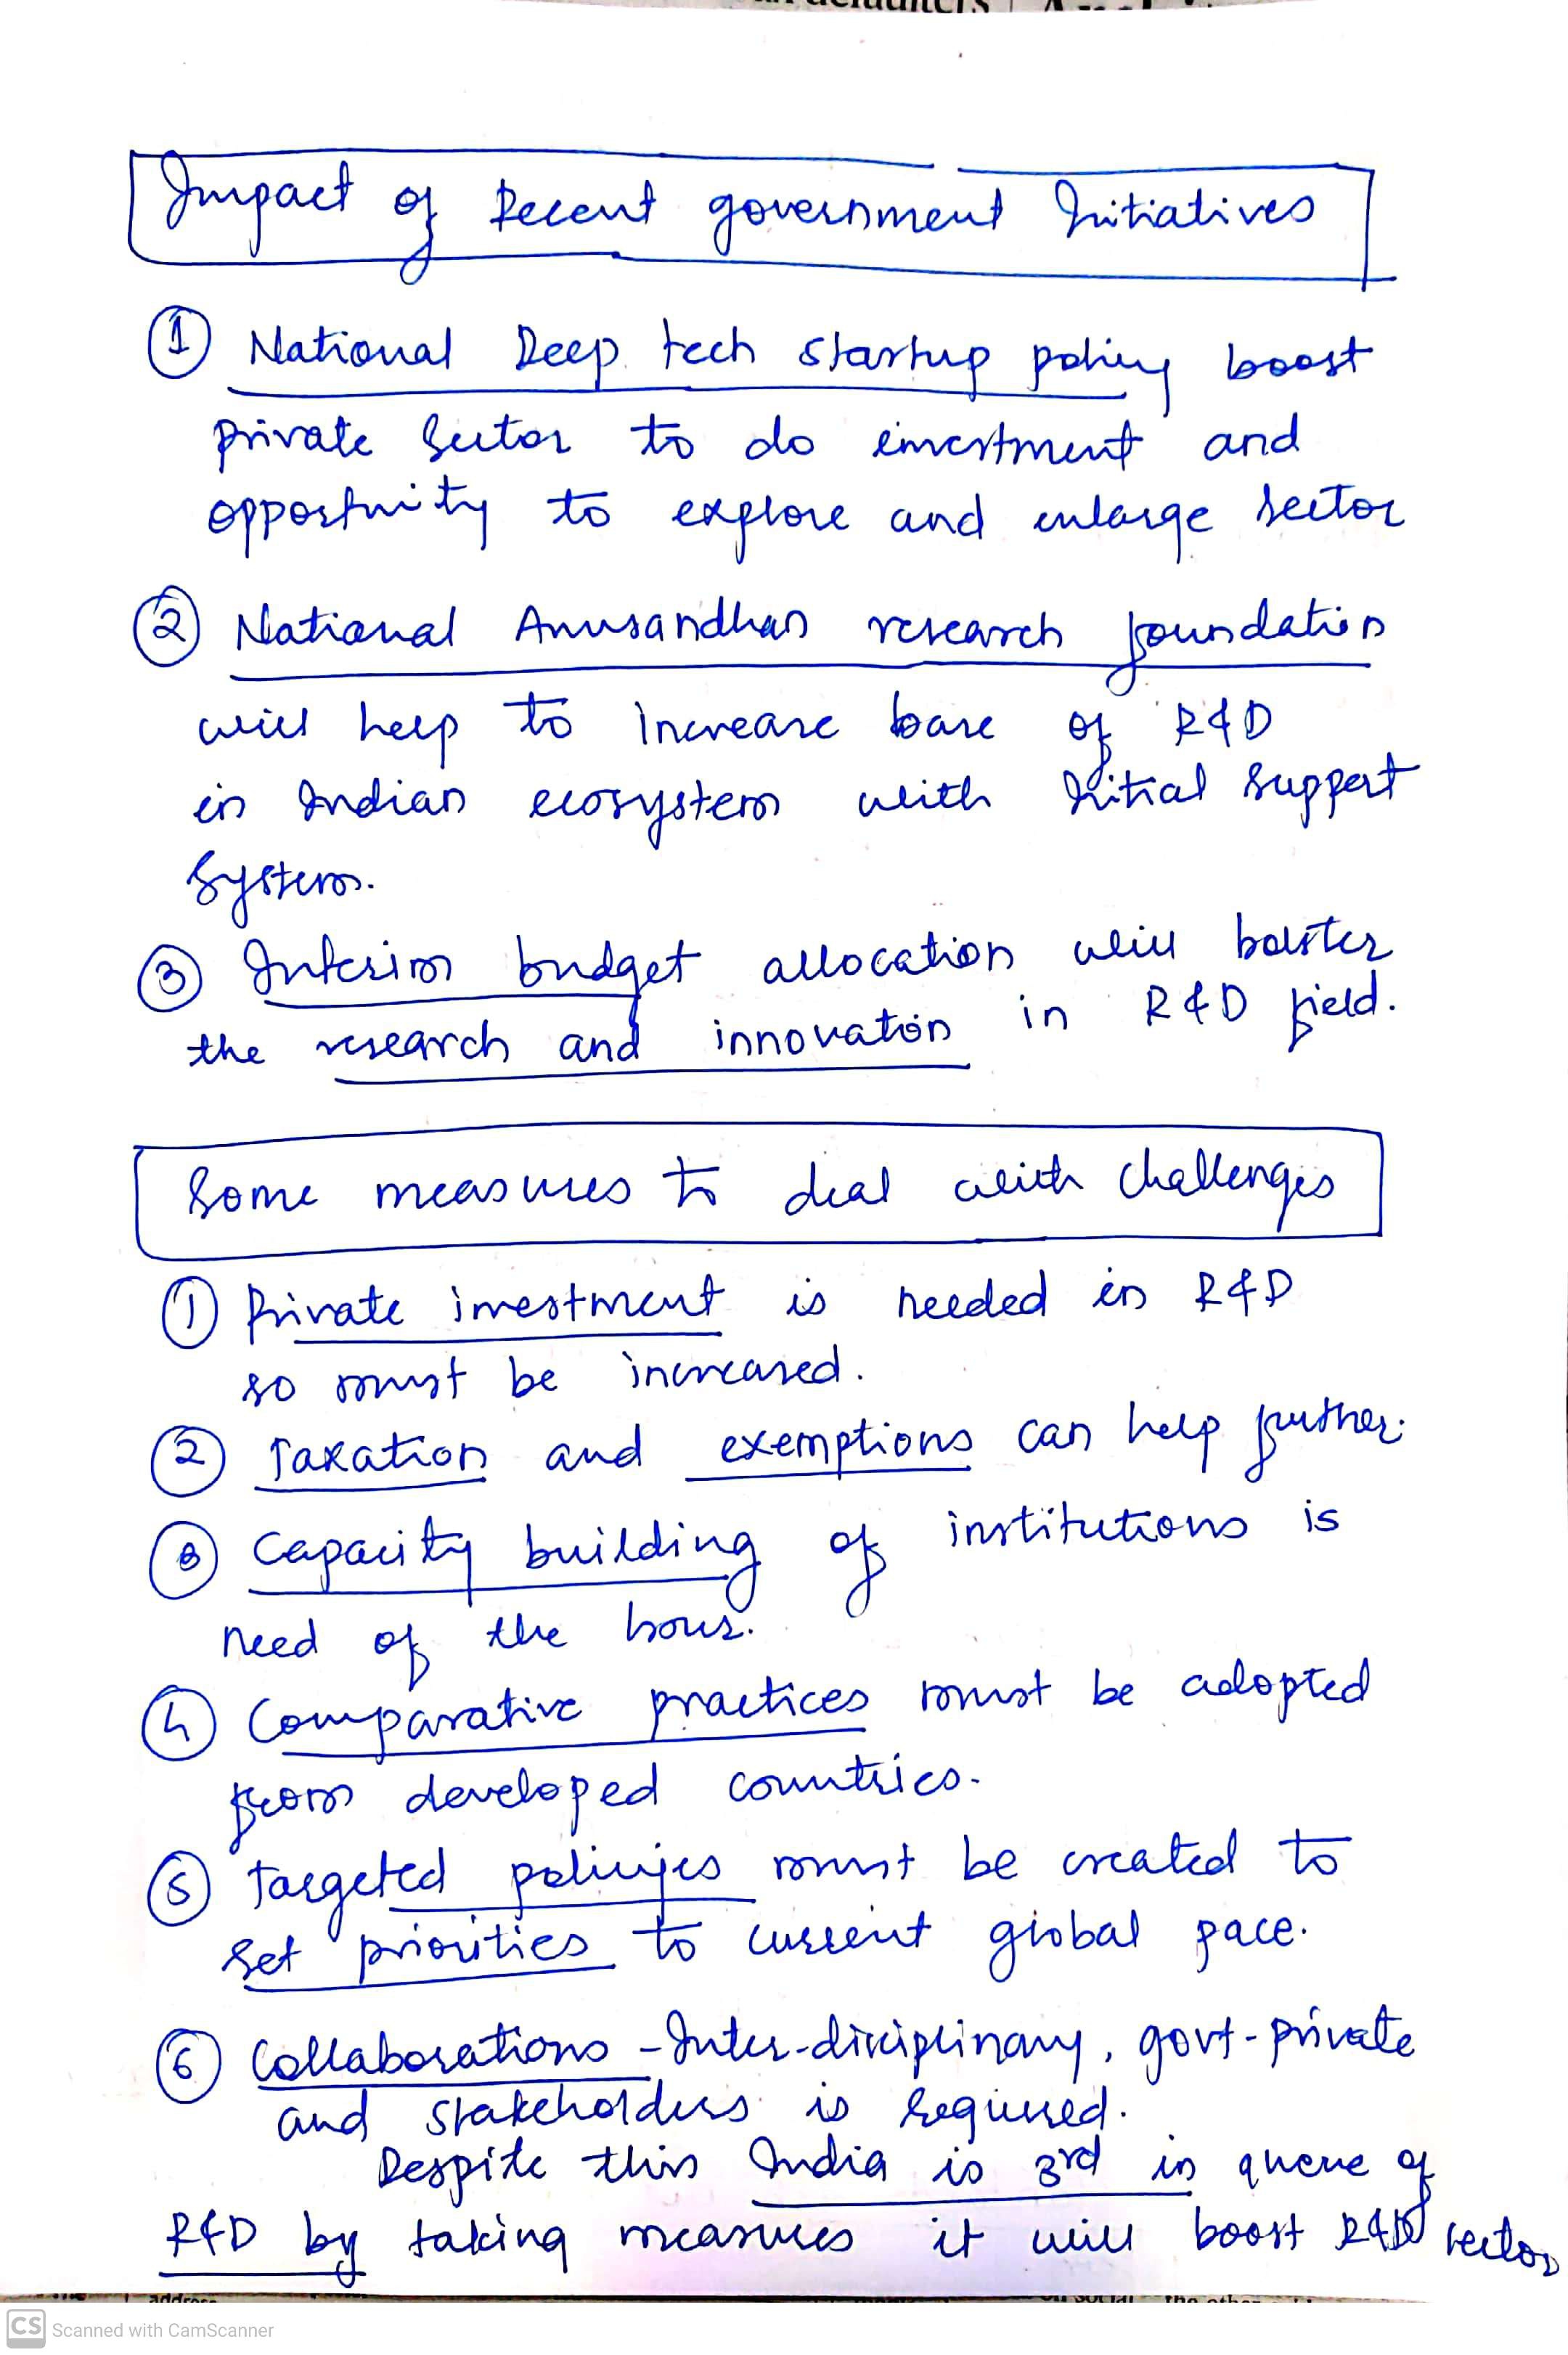 Impact of Recent government Initiatives
① National Deep tech startup policy boost
private sector to do investment and
opportunity to explore and enlarge sector
② National Anusandhan research foundation
will help to increase base of R&D
in Indian ecosystem with Initial support
system.
③ Interim budget allocation will bolster
the research and innovation in R&D field.
Some measures to deal with challenges
① Private investment is needed in R&D
so must be increased.
② Taxation and exemptions can help further.
③ Capacity building of institutions is
need of the hour.
④ Comparative practices must be adopted
from developed countries.
⑤ Targeted policies must be created to
set priorities to current global pace.
⑥ Collaborations - Inter-diciplinary, govt-private
and stakeholders is required.
Despite this India is 3rd in queue of
R&D by taking measures it will boost R&D sector
CS Scanned with CamScanner